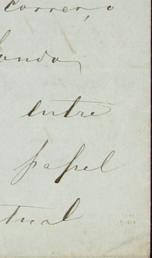 correr, o
lando,
entre
papel
tual